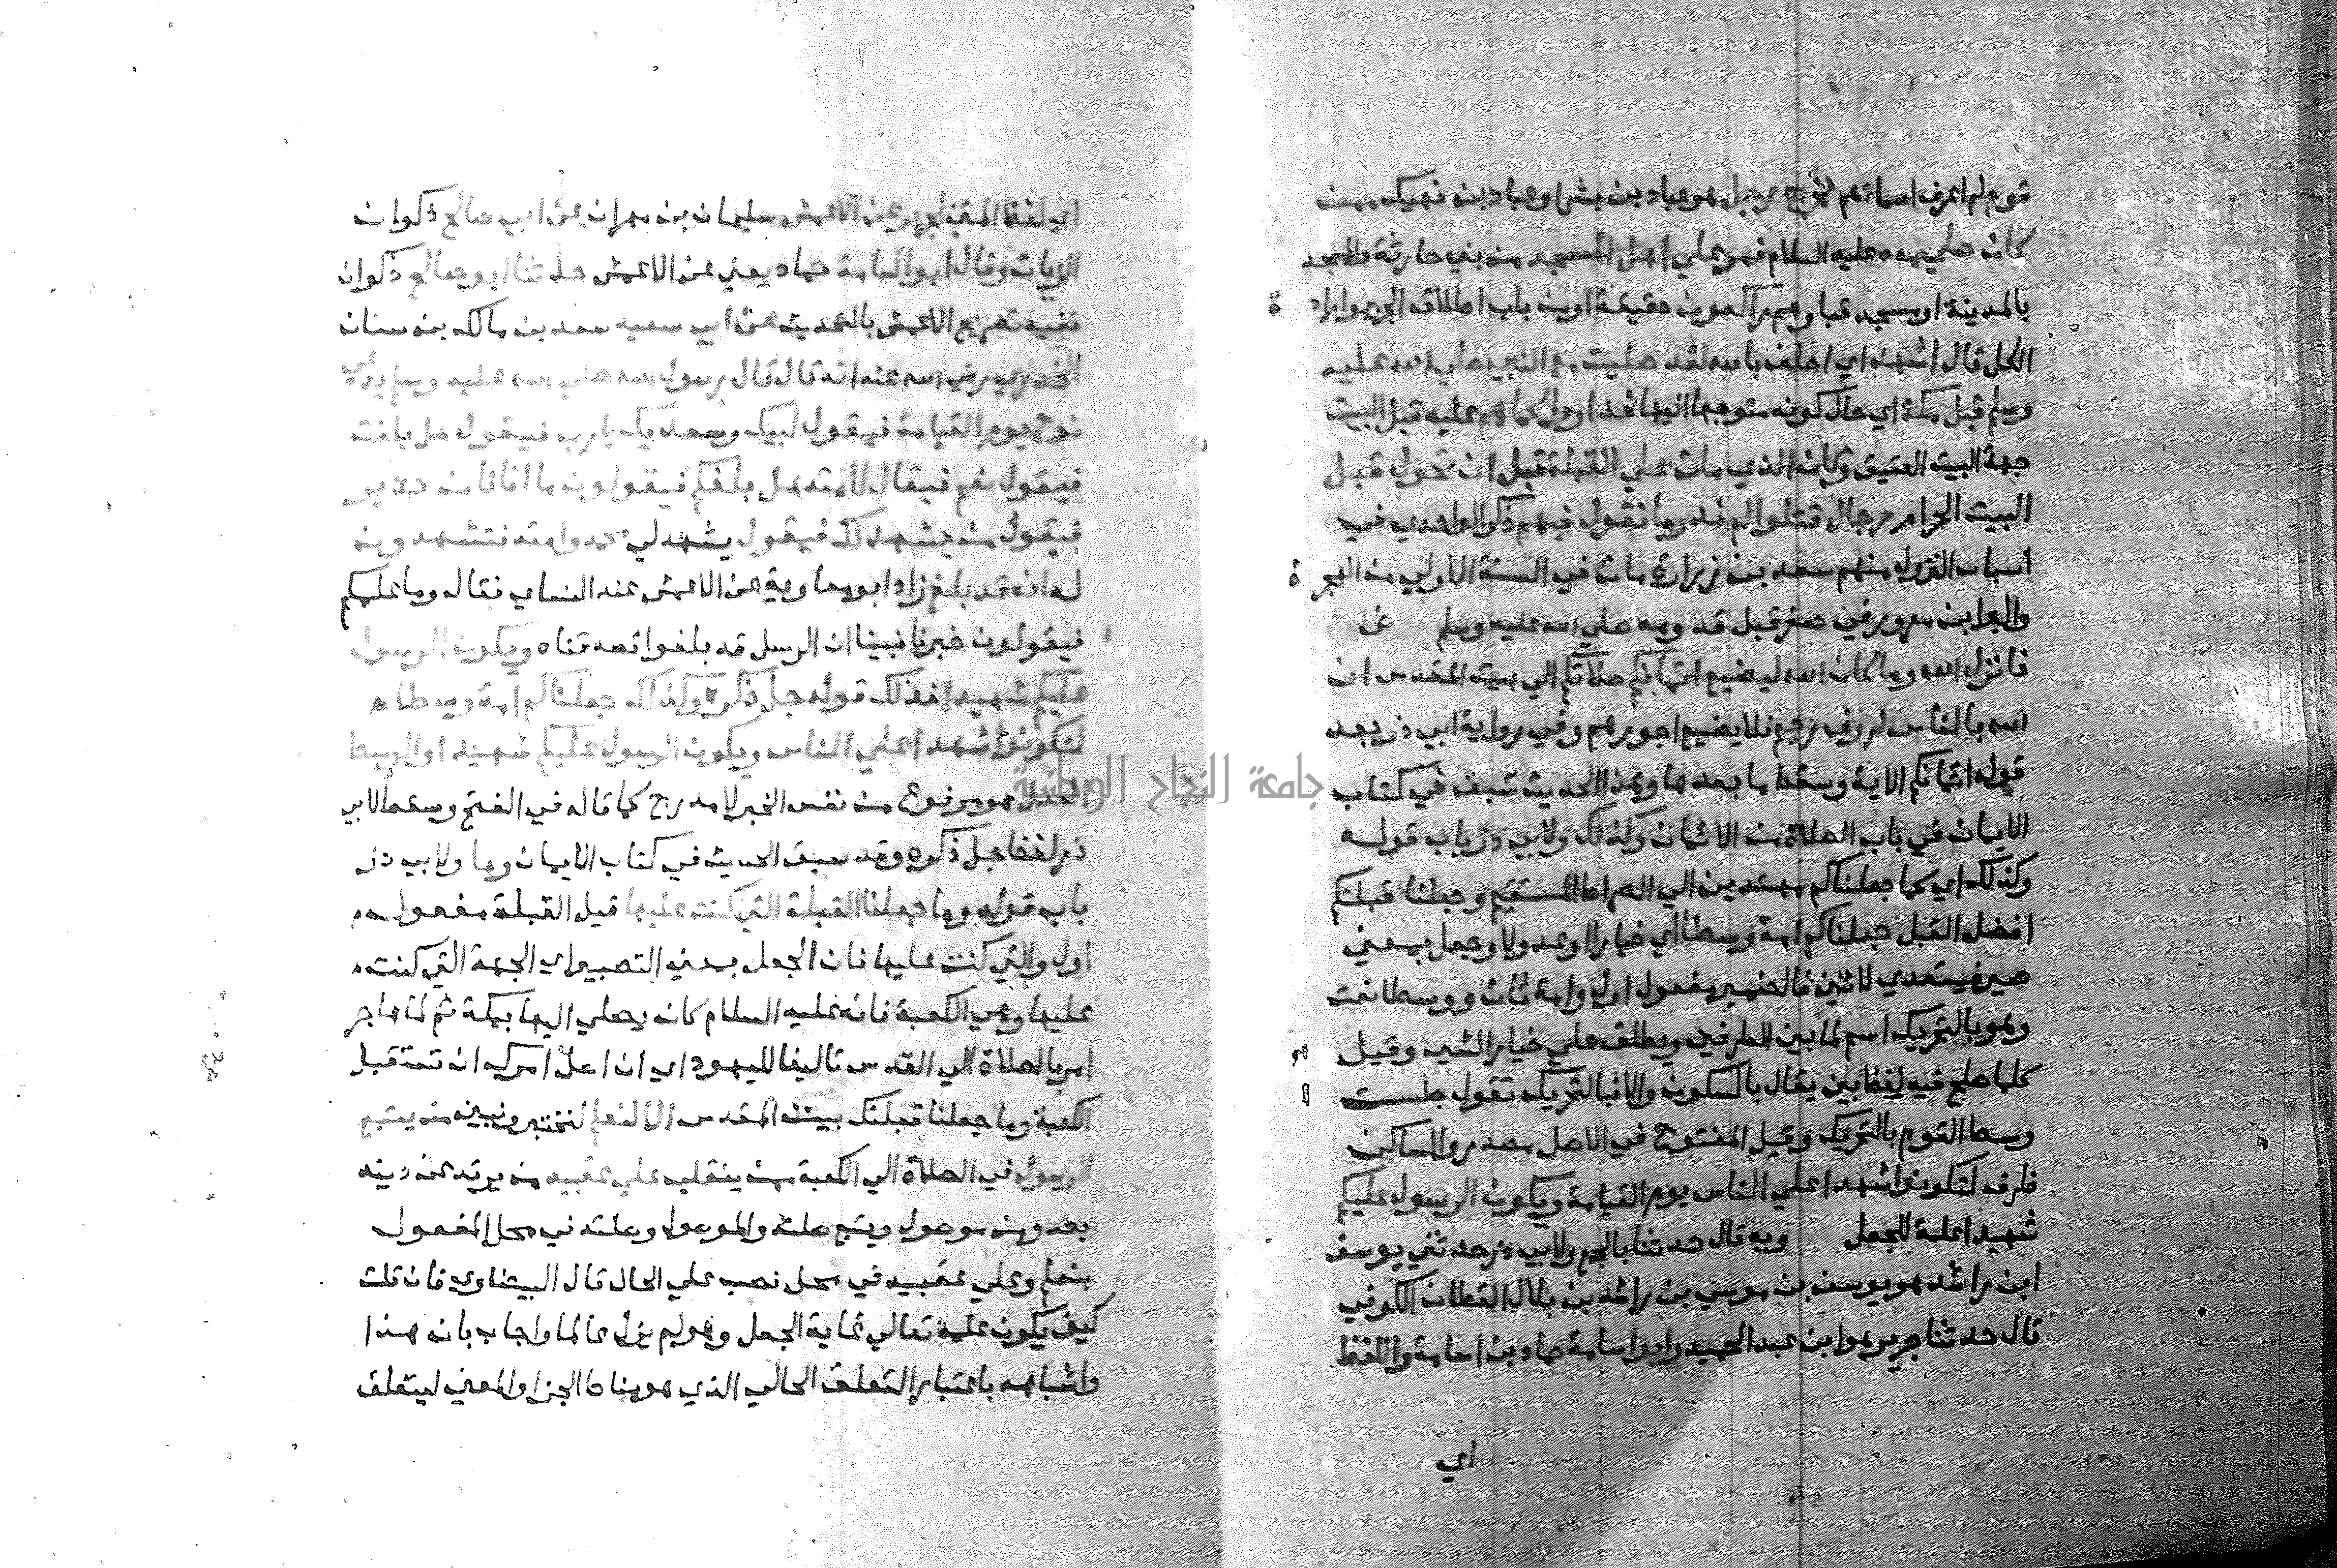 قوم لم اعرف اسماءهم فخرج رجل هو عباد بن بشر او عباد بن نهيك ممن
كان صلي معه عليه السلام فمر علي اهل المسجد من بني حارثة والمسجد
بالمدينة او مسجد قبا وهم راكعون حقيقة او من باب اطلاق الجزء وارادة
الكل قال اشهد اي احلف بالله لقد صليت مع النبي صلي الله عليه
وسلم قبل مكة اي حال كونه متوجها اليها فداروا كما هم عليه قبل البيت
جهة البيت العتيق وكان الذي مات علي القبلة قبل ان تحول قبل
البيت الحرام رجال قتلوا لم ندر ما نقول فيهم ذكر الواحدي في
اسباب النزول منهم سعد بن زرارة مات في السنة الاولي من الهجرة
والبرا بن معرور في صفر قبل قدومه صلي الله عليه وسلم
فانزل الله وما كان الله ليضيع ايمانكم صلاتكم الي بيت المقدس ان
الله بالناس لروف رحيم فلا يضيع اجورهم وفي رواية ابي ذر بعد
قوله ايمانكم الاية وسقط ما بعدها وهذا الحديث سبق في كتاب
الايمان في باب الصلاة من الايمان وكذلك ولابي ذر باب قوله
وكذلك اي كما جعلناكم مهتدين الي الصراط المستقيم وجعلنا قبلتكم
افضل القبل جعلناكم امة وسطا اي خيارا او عدولا وجعل بمعني
صير فيتعدي لاثنين فالضمير مفعول اول وامة ثان ووسطا نعت
وهو بالتحريك اسم لما بين الطرفين ويطلق علي خيار الشي وقيل
كلما صلح فيه لفظ بين يقال بالسكون والا فبالتحريك تقول جلست
وسط القوم بالتحريك وقيل المفتوح في الاصل مصدر والساكن
ظرف لتكونوا شهدا علي الناس يوم القيامة ويكون الرسول عليكم
شهيدا علة للجعل وبه قال حدثنا بالجمع ولابي ذر حدثني يوسف
ابن راشد هو يوسف بن موسي بن راشد بن بلال القطان الكوفي
قال حدثنا جرير هو ابن عبد الحميد وابو اسامة حماد بن اسامة واللفظ
اي
اي لفظ المتن لجرير عن الاعمش سليمان بن مهران عن ابي صالح ذكوان
الزيات وقال ابو اسامة حماد يعني عن الاعمش حدثنا ابو صالح ذكوان
ففيه تصريح الاعمش بالتحديث عن ابي سعيد سعد بن مالك بن سنان
الخدري رضي الله عنه انه قال قال رسول الله صلي الله عليه وسلم يدعي
نوح يوم القيامة فيقول لبيك وسعديك يارب فيقول هل بلغت
فيقول نعم فيقال لامته هل بلغكم فيقولون ما اتانا من نذير
فيقول من يشهد لك فيقول يشهد لي محمد وامته فتشهدون
له انه قد بلغ زاد ابو معاوية عن الاعمش عند النساي فقال وما علمكم
فيقولون خبرنا نبينا ان الرسل قد بلغوا فصدقناه ويكون الرسول
عليكم شهيدا فذلك قوله جل ذكره وكذلك جعلناكم امة وسطا
لتكونوا شهدا علي الناس ويكون الرسول عليكم شهيدا والوسط
العدل هو مرفوع من نفس الخبر لا مدرج كما قاله في الفتح وسقط لابي
ذر لفظ جل ذكره وقد سبق الحديث في كتاب الايمان وما ولابي ذر
باب قوله وما جعلنا القبلة التي كنت عليها قيل القبلة مفعول
اول والتي كنت عليها ثان الجعل بمعني التصيير اي الجهة التي كنت
عليها وهي الكعبة فانه عليه السلام كان يصلي اليها بمكة ثم لما هاجر
امر بالصلاة الي القدس تاليفا لليهود اي ان اصل امرك ان تستقبل
الكعبة وما جعلنا قبلتك بيت المقدس الا لنعلم لنختبر ونبين من يتبع
الرسول في الصلاة الي الكعبة ممن ينقلب علي عقبيه من يرتد عن دينه
بعد ومن موصول ويتبع صلته والموصول وصلته في محل المفعول
بنعلم وعلي عقبيه في محل نصب علي الحال قال البيضاوي فان قلت
كيف يكون علمه تعالي غاية الجعل وهو لم يزل عالما واجاب بان هذا
واشباهه باعتبار التعلق الحالي الذي هو مناط الجزا والمعني ليتعلق
جامعة النجاح الوطنية